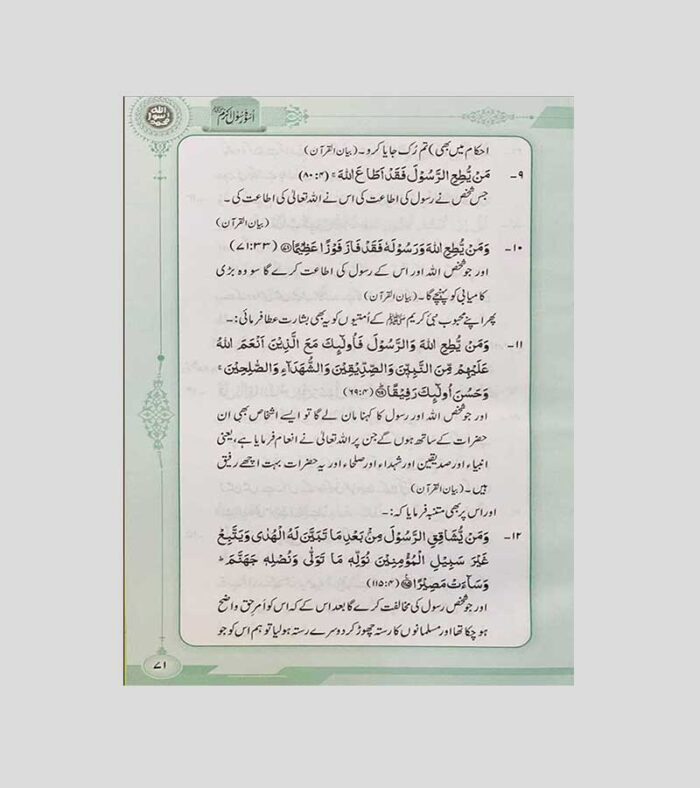 اُسوۂ رسول اکرم ﷺ
احکام میں بھی) تم رُک جایا کرو۔ (بیان القرآن)
۹- مَنْ يُّطِعِ الرَّسُوْلَ فَقَدْ اَطَاعَ اللهَ ۚ (۸۰:۴)
جس شخص نے رسول کی اطاعت کی اس نے اللہ تعالیٰ کی اطاعت کی۔
(بیان القرآن)
۱۰- وَمَنْ يُّطِعِ اللهَ وَرَسُوْلَهٗ فَقَدْ فَازَ فَوْزًا عَظِيْمًا ﴿۷۱﴾ (۷۱:۳۳)
اور جو شخص اللہ اور اس کے رسول کی اطاعت کرے گا سو وہ بڑی
کامیابی کو پہنچے گا۔ (بیان القرآن)
پھر اپنے محبوب نبی کریم ﷺ کے اُمتیوں کو یہ بھی بشارت عطا فرمائی:-
۱۱- وَمَنْ يُّطِعِ اللهَ وَالرَّسُوْلَ فَاُولٰٓئِكَ مَعَ الَّذِيْنَ اَنْعَمَ اللهُ
عَلَيْهِمْ مِّنَ النَّبِيّٖنَ وَالصِّدِّيْقِيْنَ وَالشُّهَدَآءِ وَالصّٰلِحِيْنَ ۚ
وَحَسُنَ اُولٰٓئِكَ رَفِيْقًا ﴿۶۹﴾ (۶۹:۴)
اور جو شخص اللہ اور رسول کا کہنا مان لے گا تو ایسے اشخاص بھی ان
حضرات کے ساتھ ہوں گے جن پر اللہ تعالیٰ نے انعام فرمایا ہے، یعنی
انبیاء اور صدیقین اور شہداء اور صلحاء اور یہ حضرات بہت اچھے رفیق
ہیں۔ (بیان القرآن)
اور اس پر بھی متنبہ فرمایا کہ:-
۱۲- وَمَنْ يُّشَاقِقِ الرَّسُوْلَ مِنْۢ بَعْدِ مَا تَبَيَّنَ لَهُ الْهُدٰى وَيَتَّبِعْ
غَيْرَ سَبِيْلِ الْمُؤْمِنِيْنَ نُوَلِّهٖ مَا تَوَلّٰى وَنُصْلِهٖ جَهَنَّمَ ؕ
وَسَآءَتْ مَصِيْرًا ﴿۱۱۵﴾ (۱۱۵:۴)
اور جو شخص رسول کی مخالفت کرے گا بعد اس کے کہ اس کو اَمرِ حق واضح
ہو چکا تھا اور مسلمانوں کا رستہ چھوڑ کر دوسرے رستہ ہو لیا تو ہم اس کو جو
۷۱